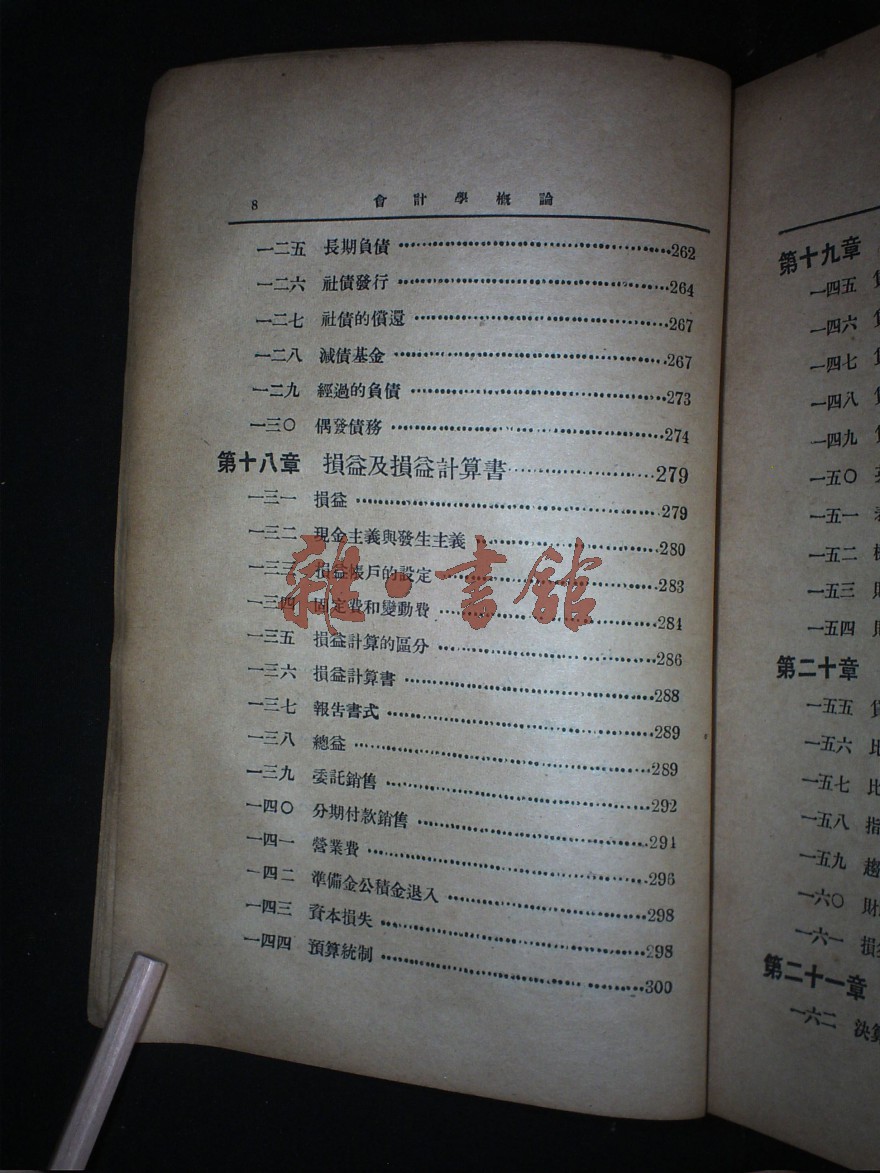 8 會計學概論
一二五 長期負債 262
一二六 社債發行 264
一二七 社債的償還 267
一二八 減債基金 267
一二九 經過的負債 273
一三〇 偶發債務 274
第十八章 損益及損益計算書 279
一三一 損益 279
一三二 現金主義與發生主義 280
一三三 損益帳戶的設定 283
一三四 固定費和變動費 284
一三五 損益計算的區分 286
一三六 損益計算書 288
一三七 報告書式 289
一三八 總益 289
一三九 委託銷售 292
一四〇 分期付款銷售 294
一四一 營業費 296
一四二 準備金公積金退入 298
一四三 資本損失 298
一四四 預算統制 300
雜·書館
第十九章
一四五
一四六
一四七
一四八
一四九
一五〇
一五一
一五二
一五三
一五四
第二十章
一五五
一五六 比
一五七 比
一五八 指
一五九 趨
一六〇 財
一六一 損
第二十一章
一六二 決算